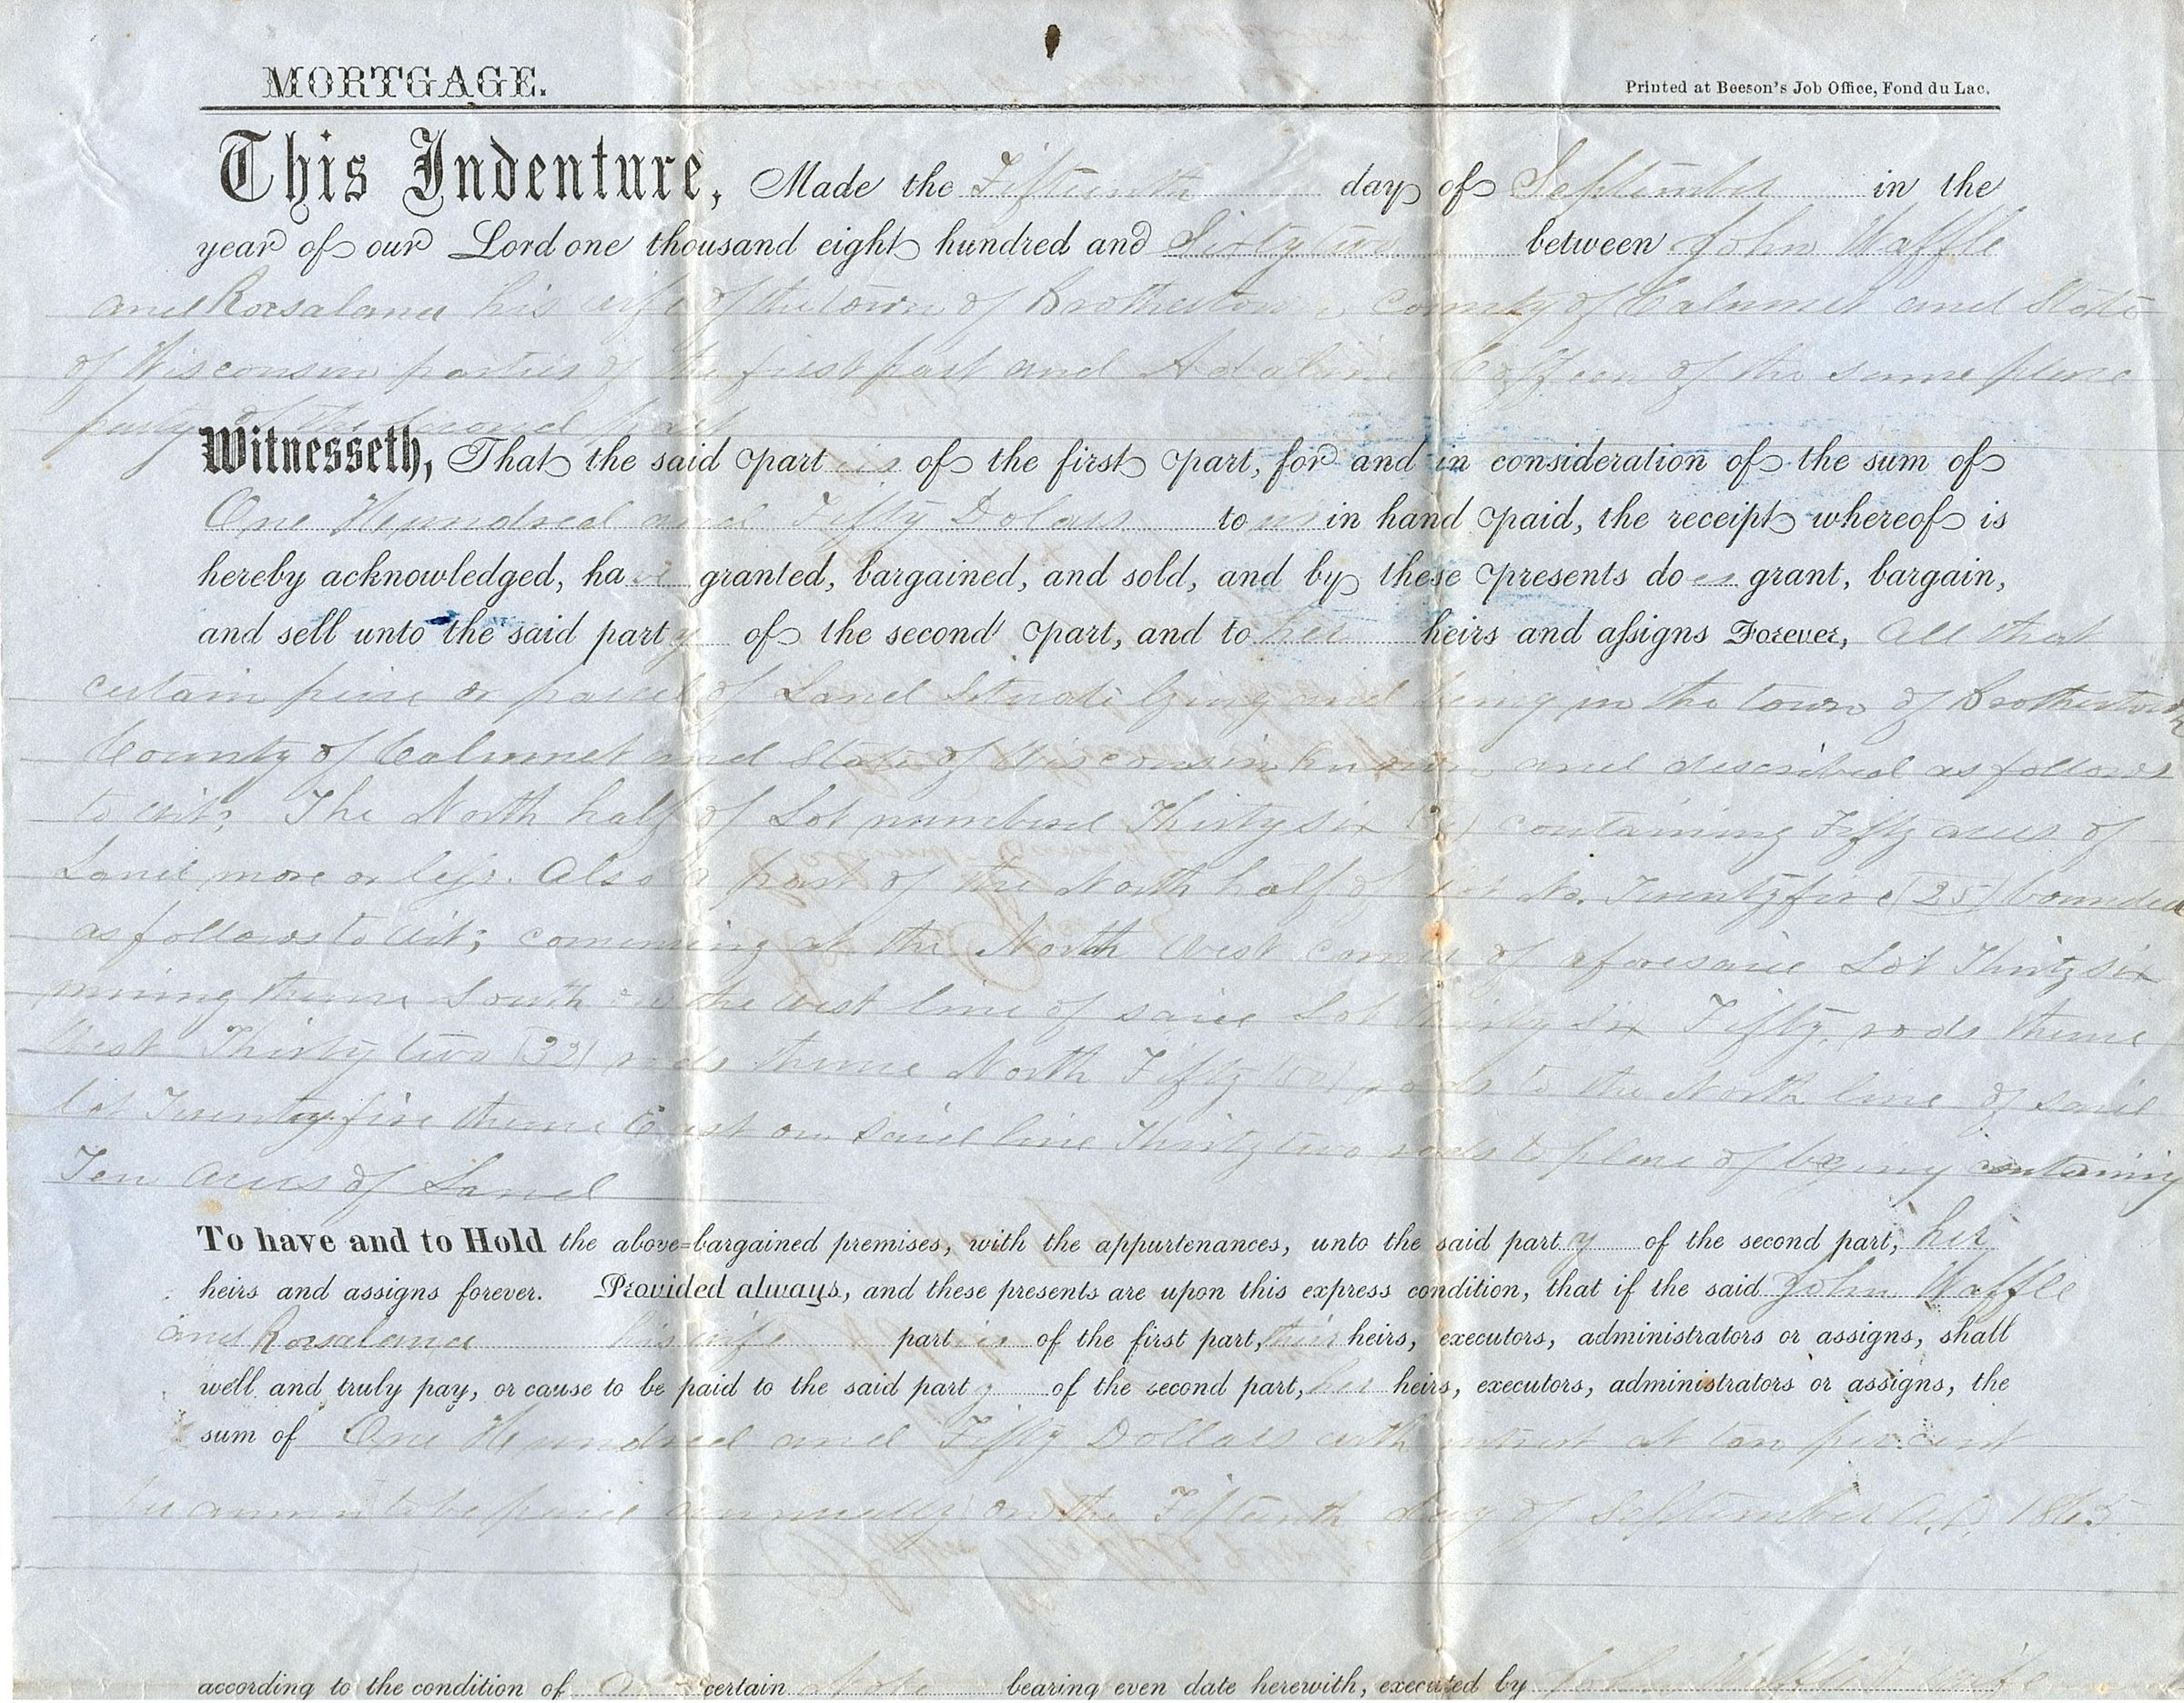 MORTGAGE.
Printed at Beeson's Job Office, Fond du Lac.
This Indenture, Made the Fifteenth day of September in the
year of our Lord one thousand eight hundred and Sixty two between John Waffle
and Rosalana his wife of the town of Brothertown County of Calumet and State
of Wisconsin parties of the first part and Adaline Coffeen of the same place
party of the second part
Witnesseth, That the said part ies of the first part, for and in consideration of the sum of
One Hundred and Fifty Dolars to us in hand paid, the receipt whereof is
hereby acknowledged, ha ve granted, bargained, and sold, and by these presents do es grant, bargain,
and sell unto the said part y of the second part, and to her heirs and assigns Forever, All that
certain piece or parcel of Land Situate lying and being in the town of Brothertown
County of Calumet and State of Wisconsin known and described as follows
to wit; The North half of Lot numbered Thirty six containing Fifty acres of
Land more or less. Also a part of the North half of Lot No. Twenty five (25) bounded
as follows to wit; comencing at the North West corner of aforesaid Lot Thirty six
running thence South on the west line of said Lot Thirty six Fifty rods thence
West Thirty two (32) rods thence North Fifty (50) rods to the North line of said
lot Twenty five thence East on said line Thirty two rods to place of containing
Ten acres of Land
To have and to Hold the above-bargained premises, with the appurtenances, unto the said part y of the second part, her
heirs and assigns forever. Provided always, and these presents are upon this express condition, that if the said John Waffle
and Rosalana his wife part ies of the first part, their heirs, executors, administrators or assigns, shall
well and truly pay, or cause to be paid to the said part y of the second part, her heirs, executors, administrators or assigns, the
sum of One Hundred and Fifty Dollars with interest at ten per cent
per annum to be paid annually on the Fifteenth day of September A.D. 1865
according to the condition of a certain Note bearing even date herewith, executed by John Waffle wife